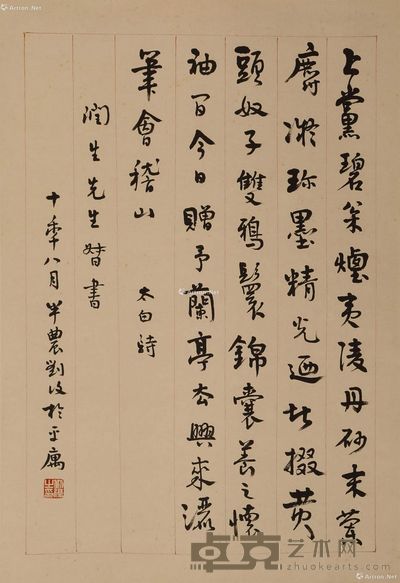 上黨碧枀煙夷陵丹砂末蘭
麝凝珍墨精光迺堪掇黃
頭奴子雙鴉鬟錦囊養之懷
袖間今日贈予蘭亭去興來灑
筆會稽山 太白詩
潤生先生 書
十年八月半農劉復於平寓
Artron.Net
卓克艺术网
www.zhuokearts.com